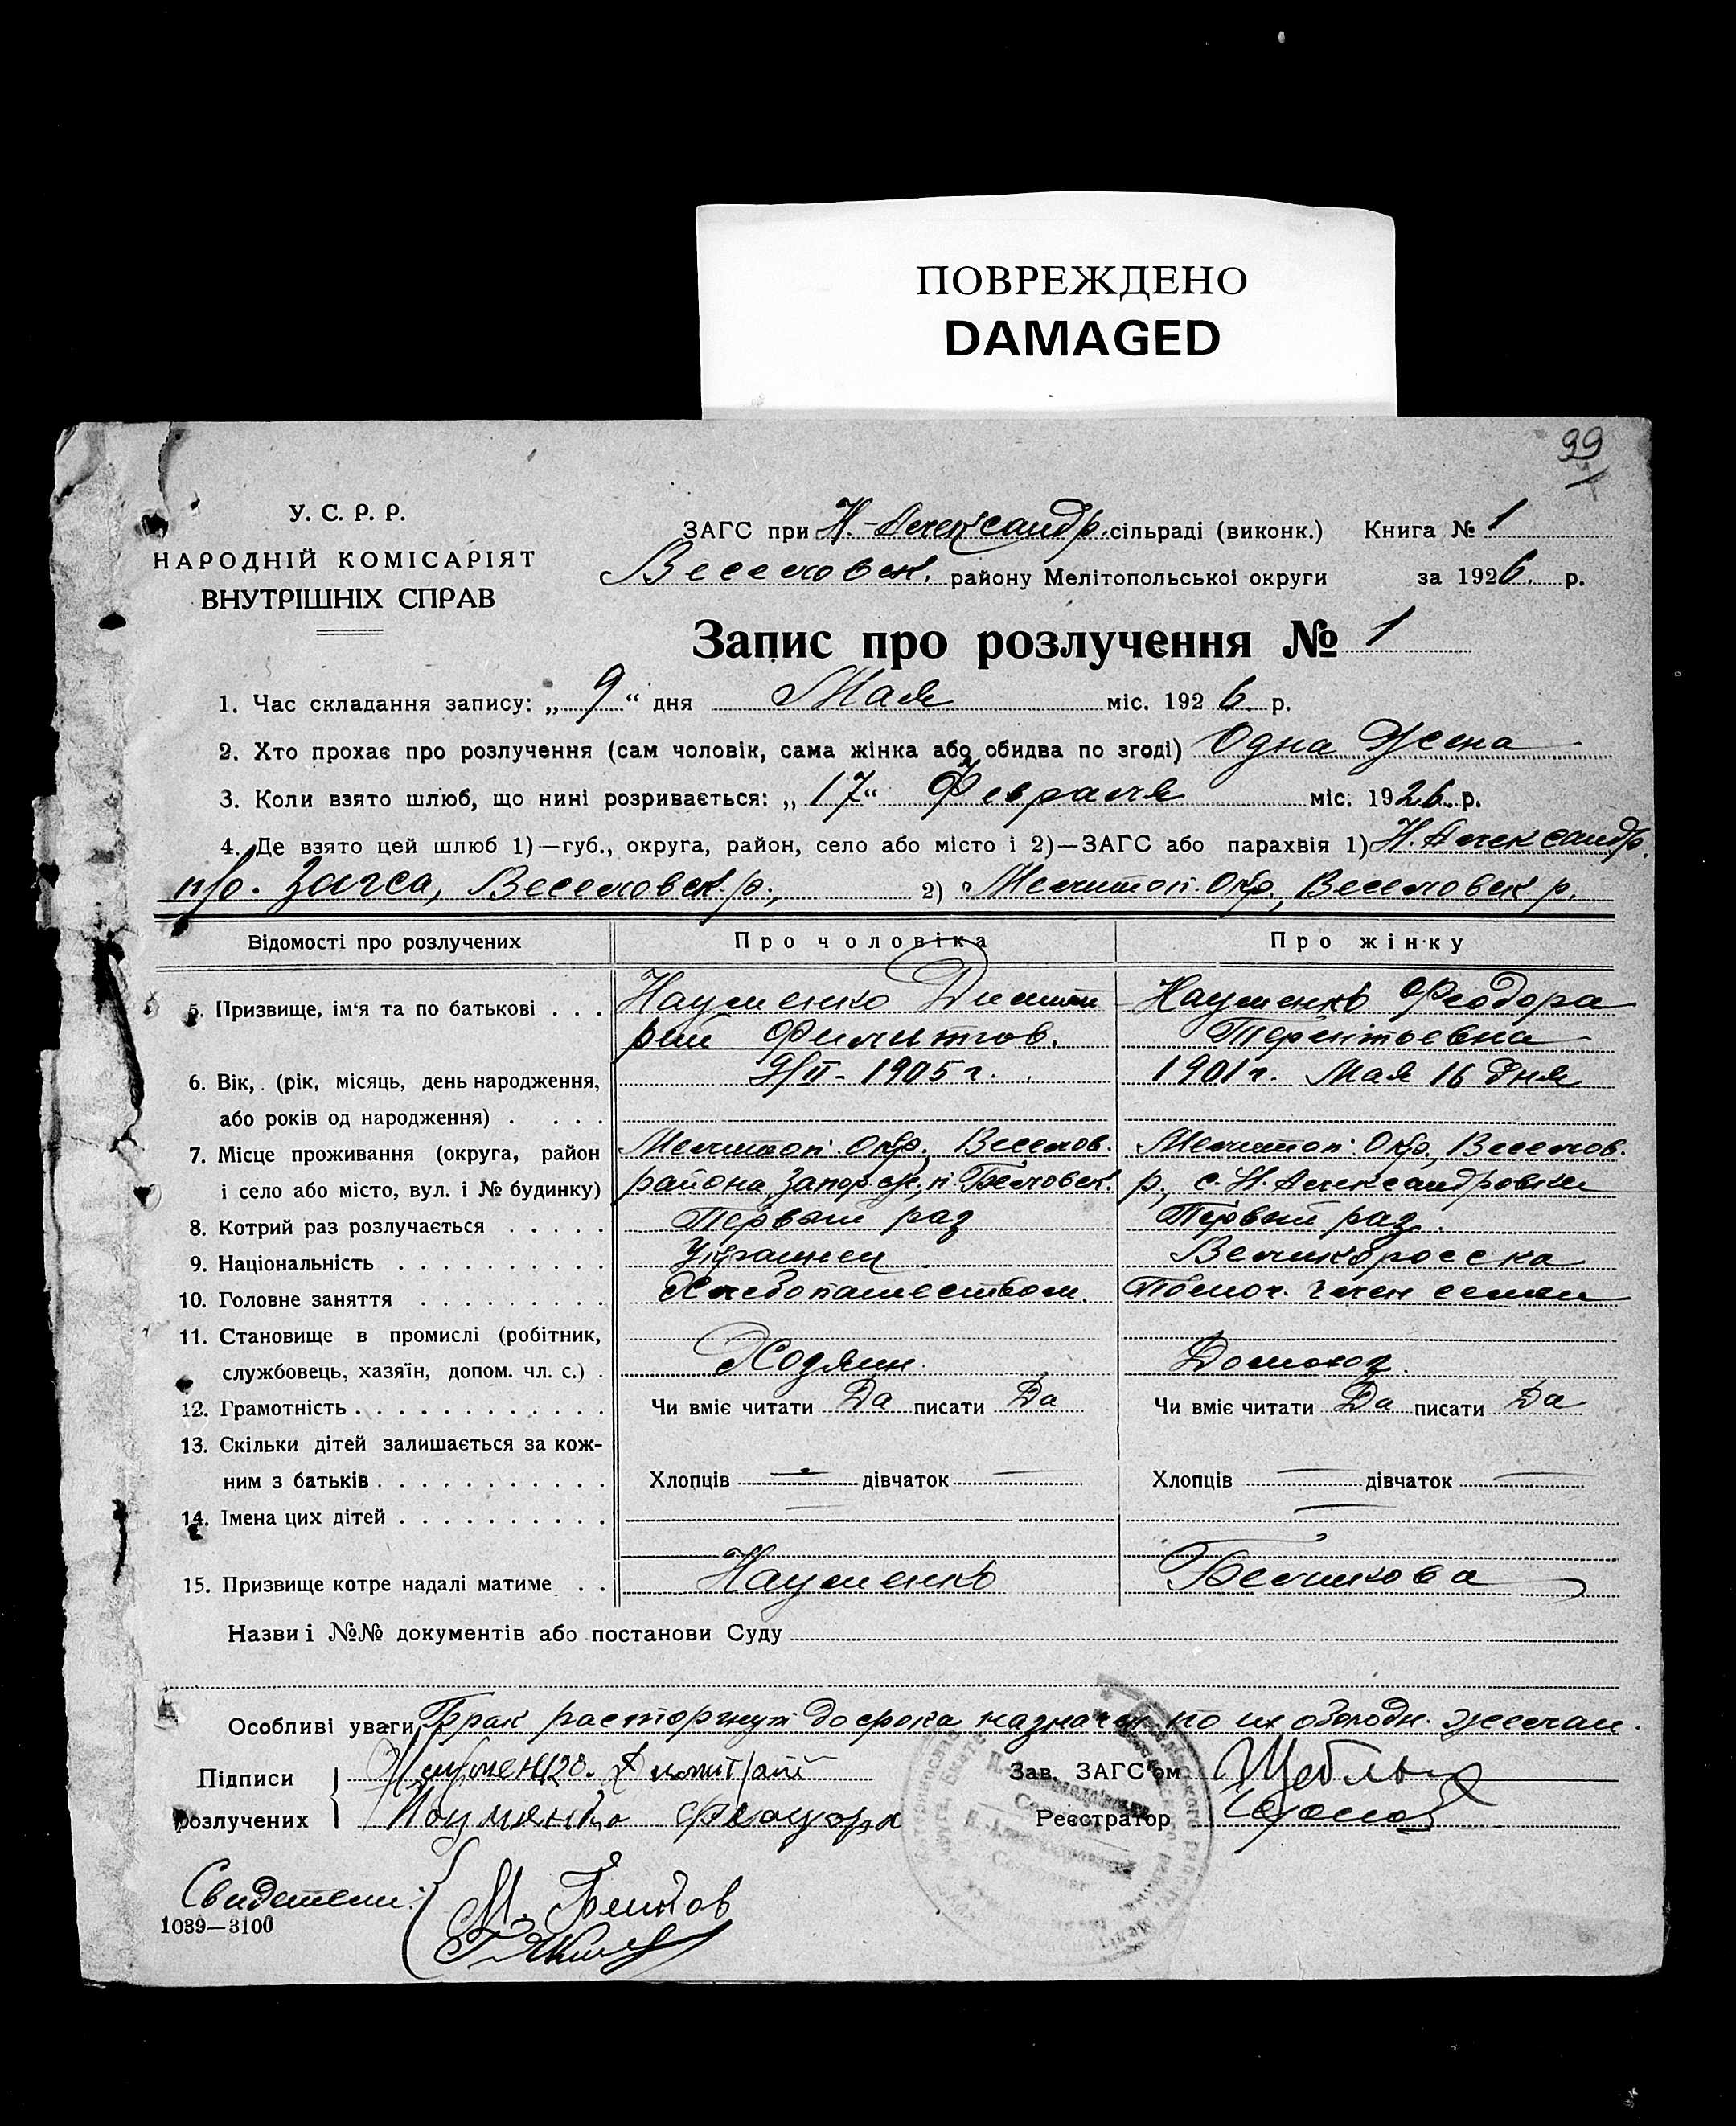 ПОВРЕЖДЕНО
DAMAGED
99
У. С. Р. Р.
НАРОДНІЙ КОМІСАРІЯТ
ВНУТРІШНІХ СПРАВ
ЗАГС при Н.-Александр. сільраді (виконк.) Книга № 1
Веселовск. району Мелітопольської округи за 1926 р.
Запис про розлучення № 1
1. Час складання запису: „ 9 “ дня Мая міс. 1926. р.
2. Хто прохає про розлучення (сам чоловік, сама жінка або обидва по згоді) Одна жена
3. Коли взято шлюб, що нині розривається: „ 17 “ Февраля міс. 1926. р.
4. Де взято цей шлюб 1)—губ., округа, район, село або місто і 2)—ЗАГС або парахвія 1) Н. Александр.
п/о. Загса, Веселовск. р., 2) Мелитоп. Окр., Веселовск р.
Відомості про розлучених Про чоловіка Про жінку
5. Призвище, ім‘я та по батькові . . . Науменко Димит Науменко Феодора
рий Филиппов. Терентьевна
6. Вік, (рік, місяць, день народження, 9/II - 1905 г. 1901 г. Мая 16 дня
або років од народження) . . . .
7. Місце проживання (округа, район Мелитоп. Окр., Веселов. Мелитоп. Окр., Веселов.
і село або місто, вул. і № будинку) района, Запорож, п. Беловск. р., с. Н. Александровки
8. Котрий раз розлучається . . . . . Первый раз Первый раз.
9. Національність . . . . . . . . . . Украинец Великоросска
10. Головне заняття . . . . . . . . . Хлебопашеством. Помоч. член семьи
11. Становище в промислі (робітник,
службовець, хазяїн, допом. чл. с.) . Хозяин. Домохоз.
12. Грамотність . . . . . . . . . . . . Чи вміє читати Да писати Да Чи вміє читати Да писати Да
13. Скільки дітей залишається за кож-
ним з батьків . . . . . . . . . . . Хлопців — дівчаток — Хлопців — дівчаток —
14. Імена цих дітей . . . . . . . . . . — —
15. Призвище котре надалі матиме . . Науменко Беликова
Назви і №№ документів або постанови Суду
Особливі уваги Брак расторгнут до срока назнач. по их обоюдн. желан.
Підписи Науменко. Дмитрий Зав. ЗАГС'ом
розлучених Науменко Феодора Реєстратор
Свидетели: М.
1039—3100